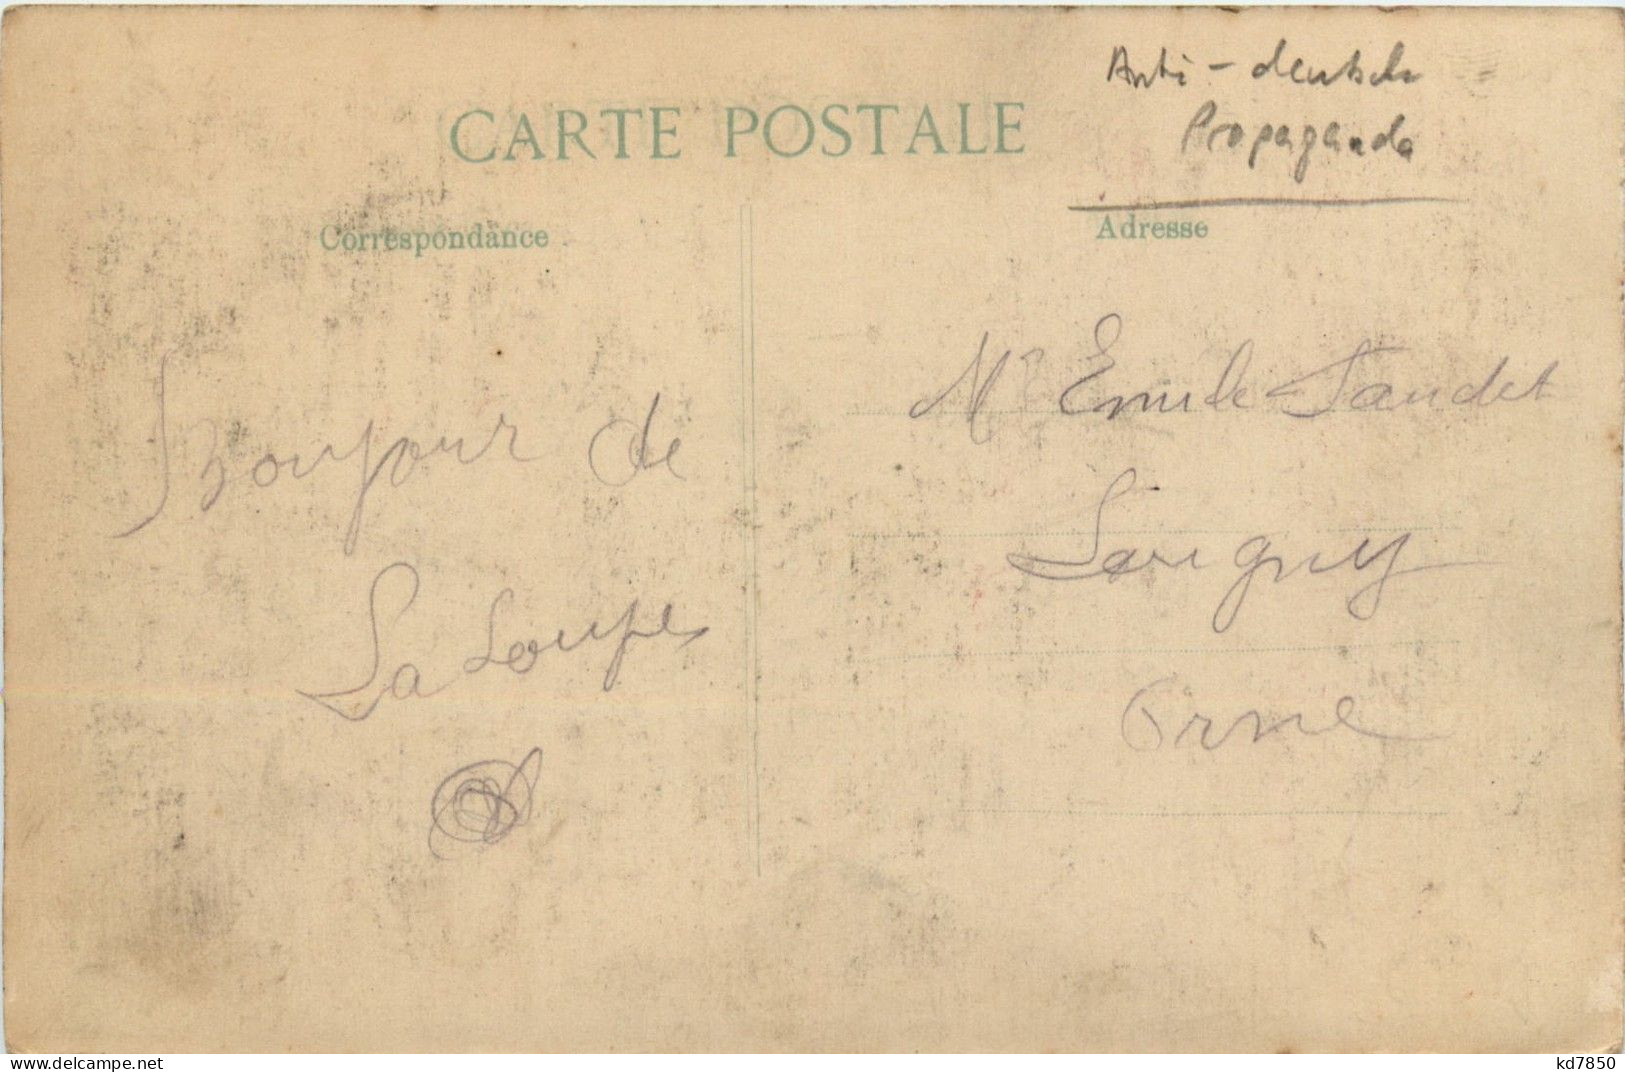 Anti-deutsche
Propaganda
CARTE POSTALE
Correspondance
Adresse
Bonjour de
La Loupe
Mr Emile
Orne
https://www.delcampe.net
kd7850